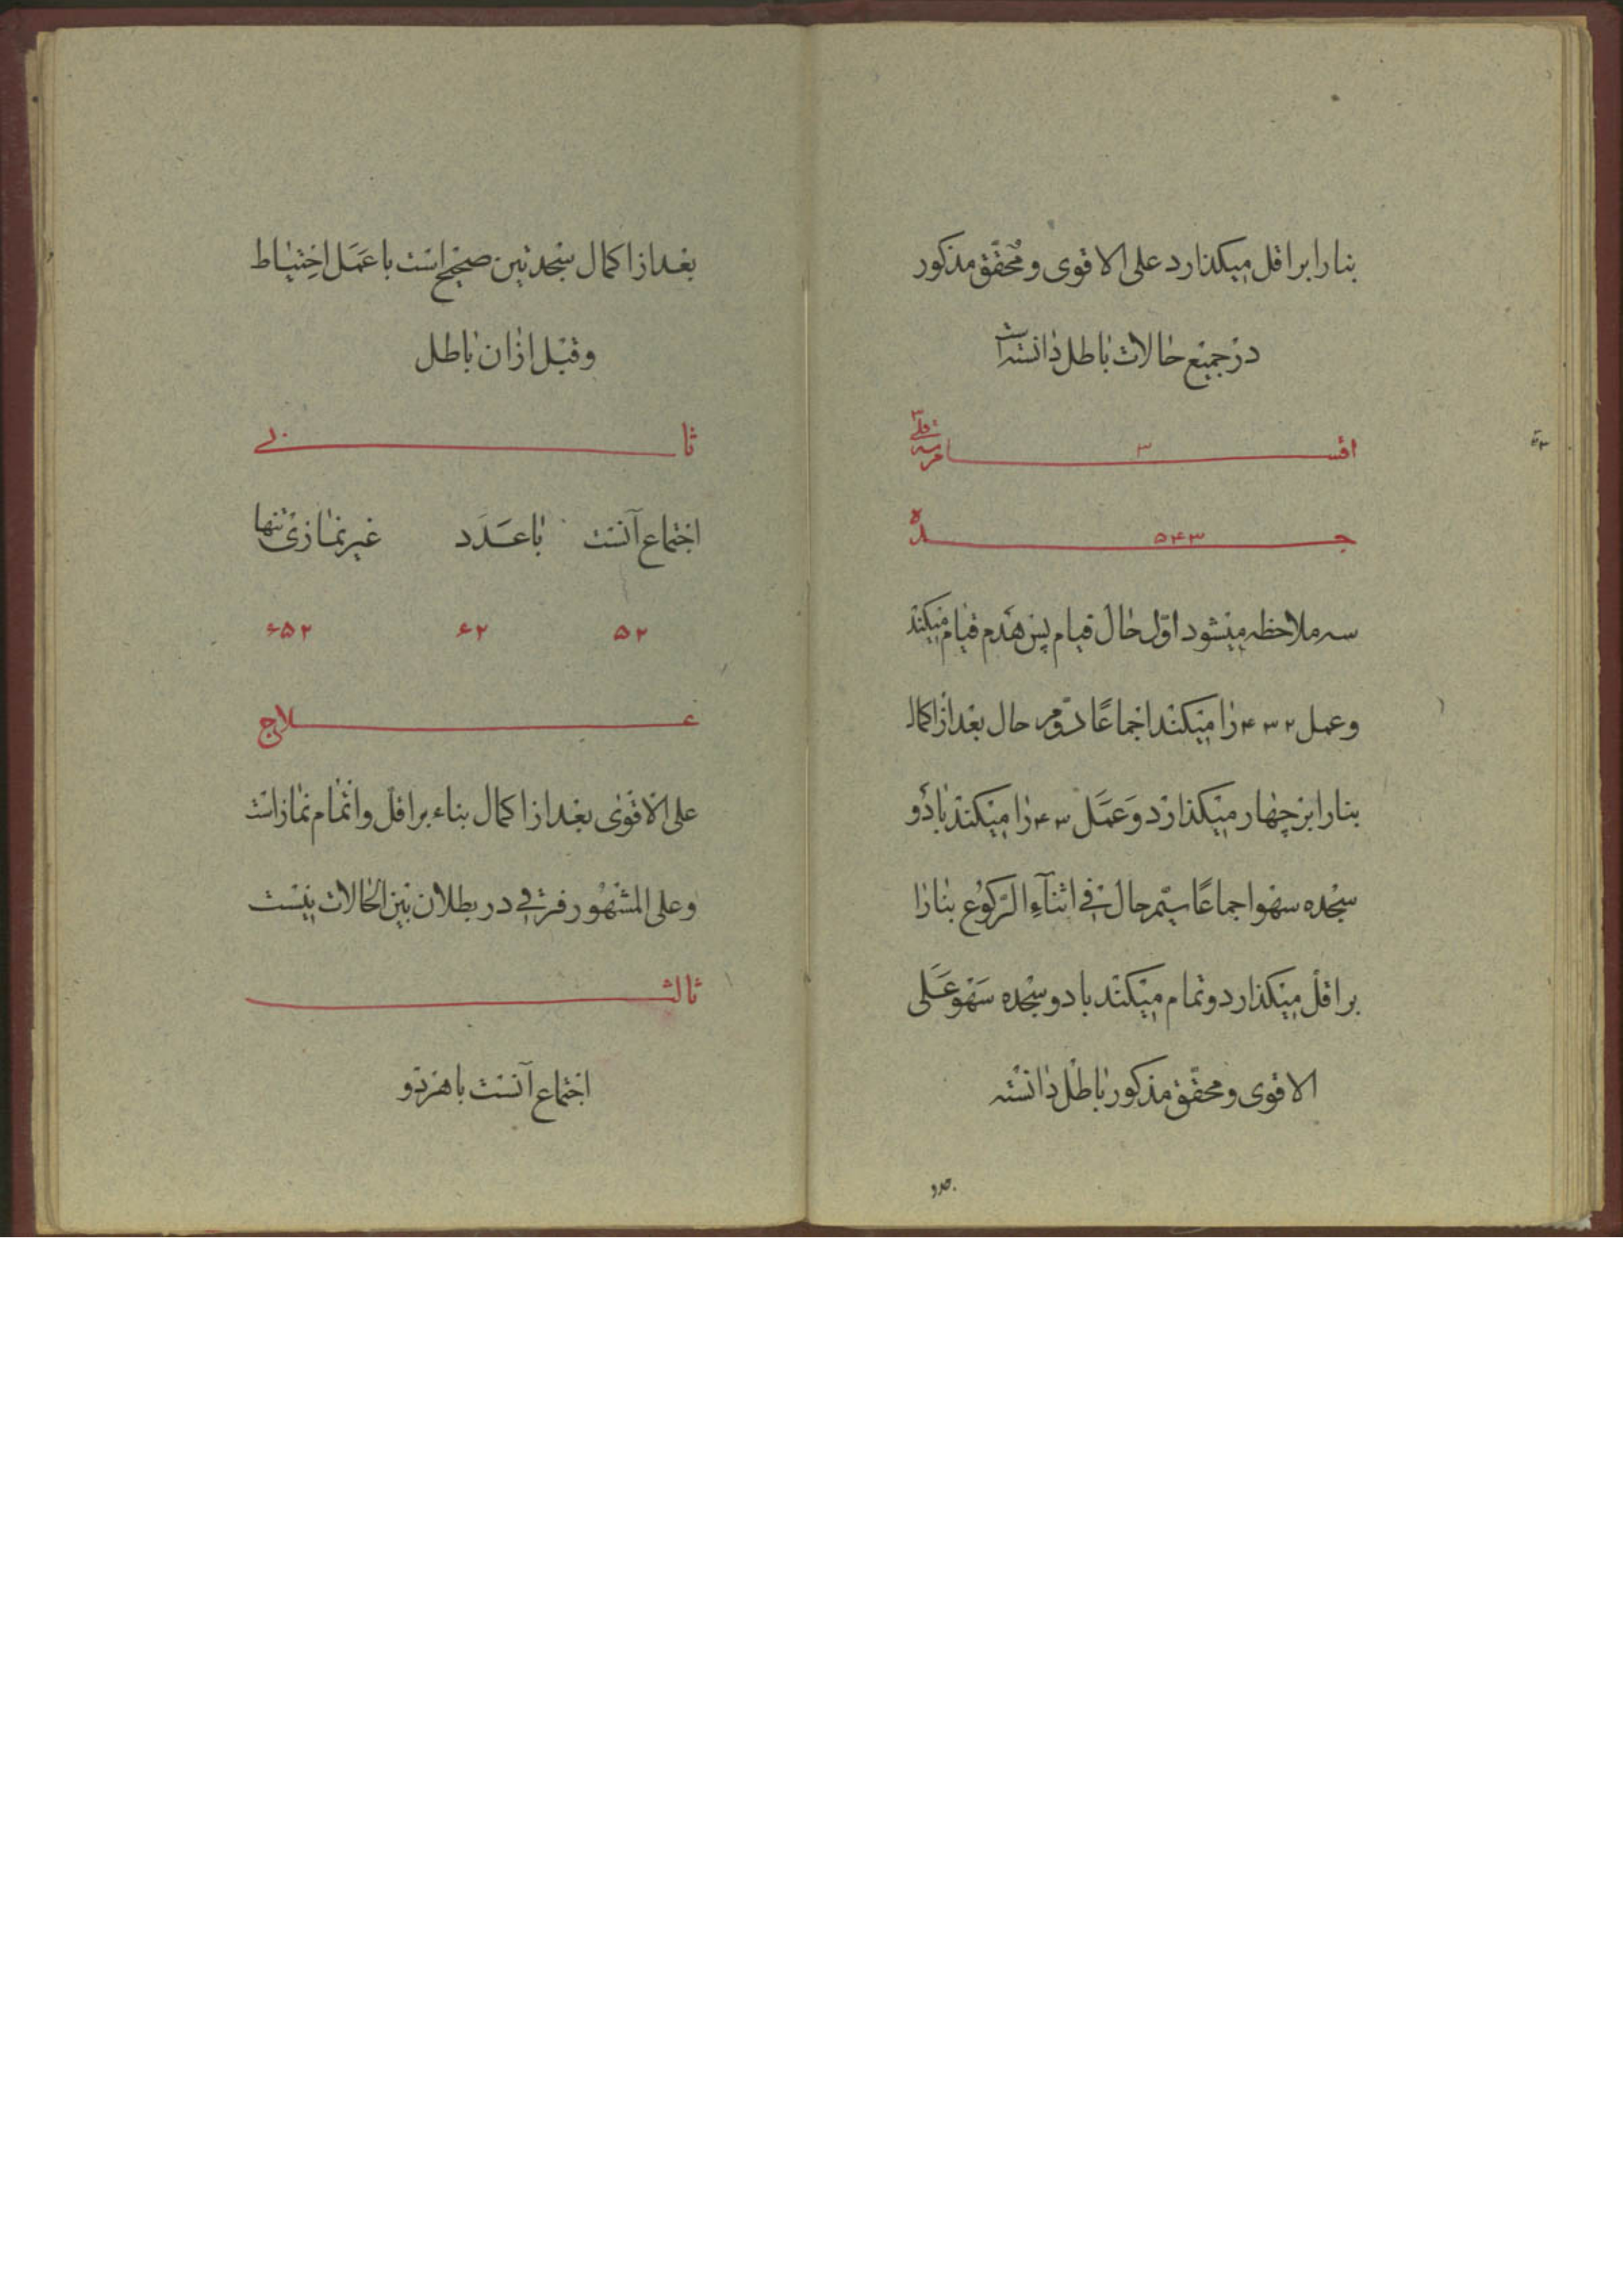 بنا را بر اقل میگذارد علی الاقوی و محقق مذکور
در جمیع حالات باطل دانسته است
اقسا ۳
جده ۵۴۳
سه ملاحظه میشود اوّل حال قیام پس هدم قیام میکند
و عمل ۴۳۲ را میکند اجماعًا دوّم حال بعد از اکمال
بنا را بر چهار میگذارد وَ عَمَل ۴۳ را میکند با دو
سجده سهو اجماعًا سیّم حال فی اثنآءِ الرّکوُع بنا را
بر اقل میگذارد و تمام میکند با دو سجده سَهو عَلی
الاقوی و محقّق مذکور باطل دانسته
بعد از اکمال سجدتین صحیح است با عَمَل اخِتیاط
و قبل از ان باطل
ثانی
اجتماع آنست با عَدَد غیر نمازی تنها
۵۲ ۶۲ ۶۵۲
علاج
علی الاقوی بعد از اکمال بناء بر اقل و اتمام نماز است
و علی المشهُور فرقی در بطلان بین الحالات نیست
ثالث
اجتماع آنست با هر دو